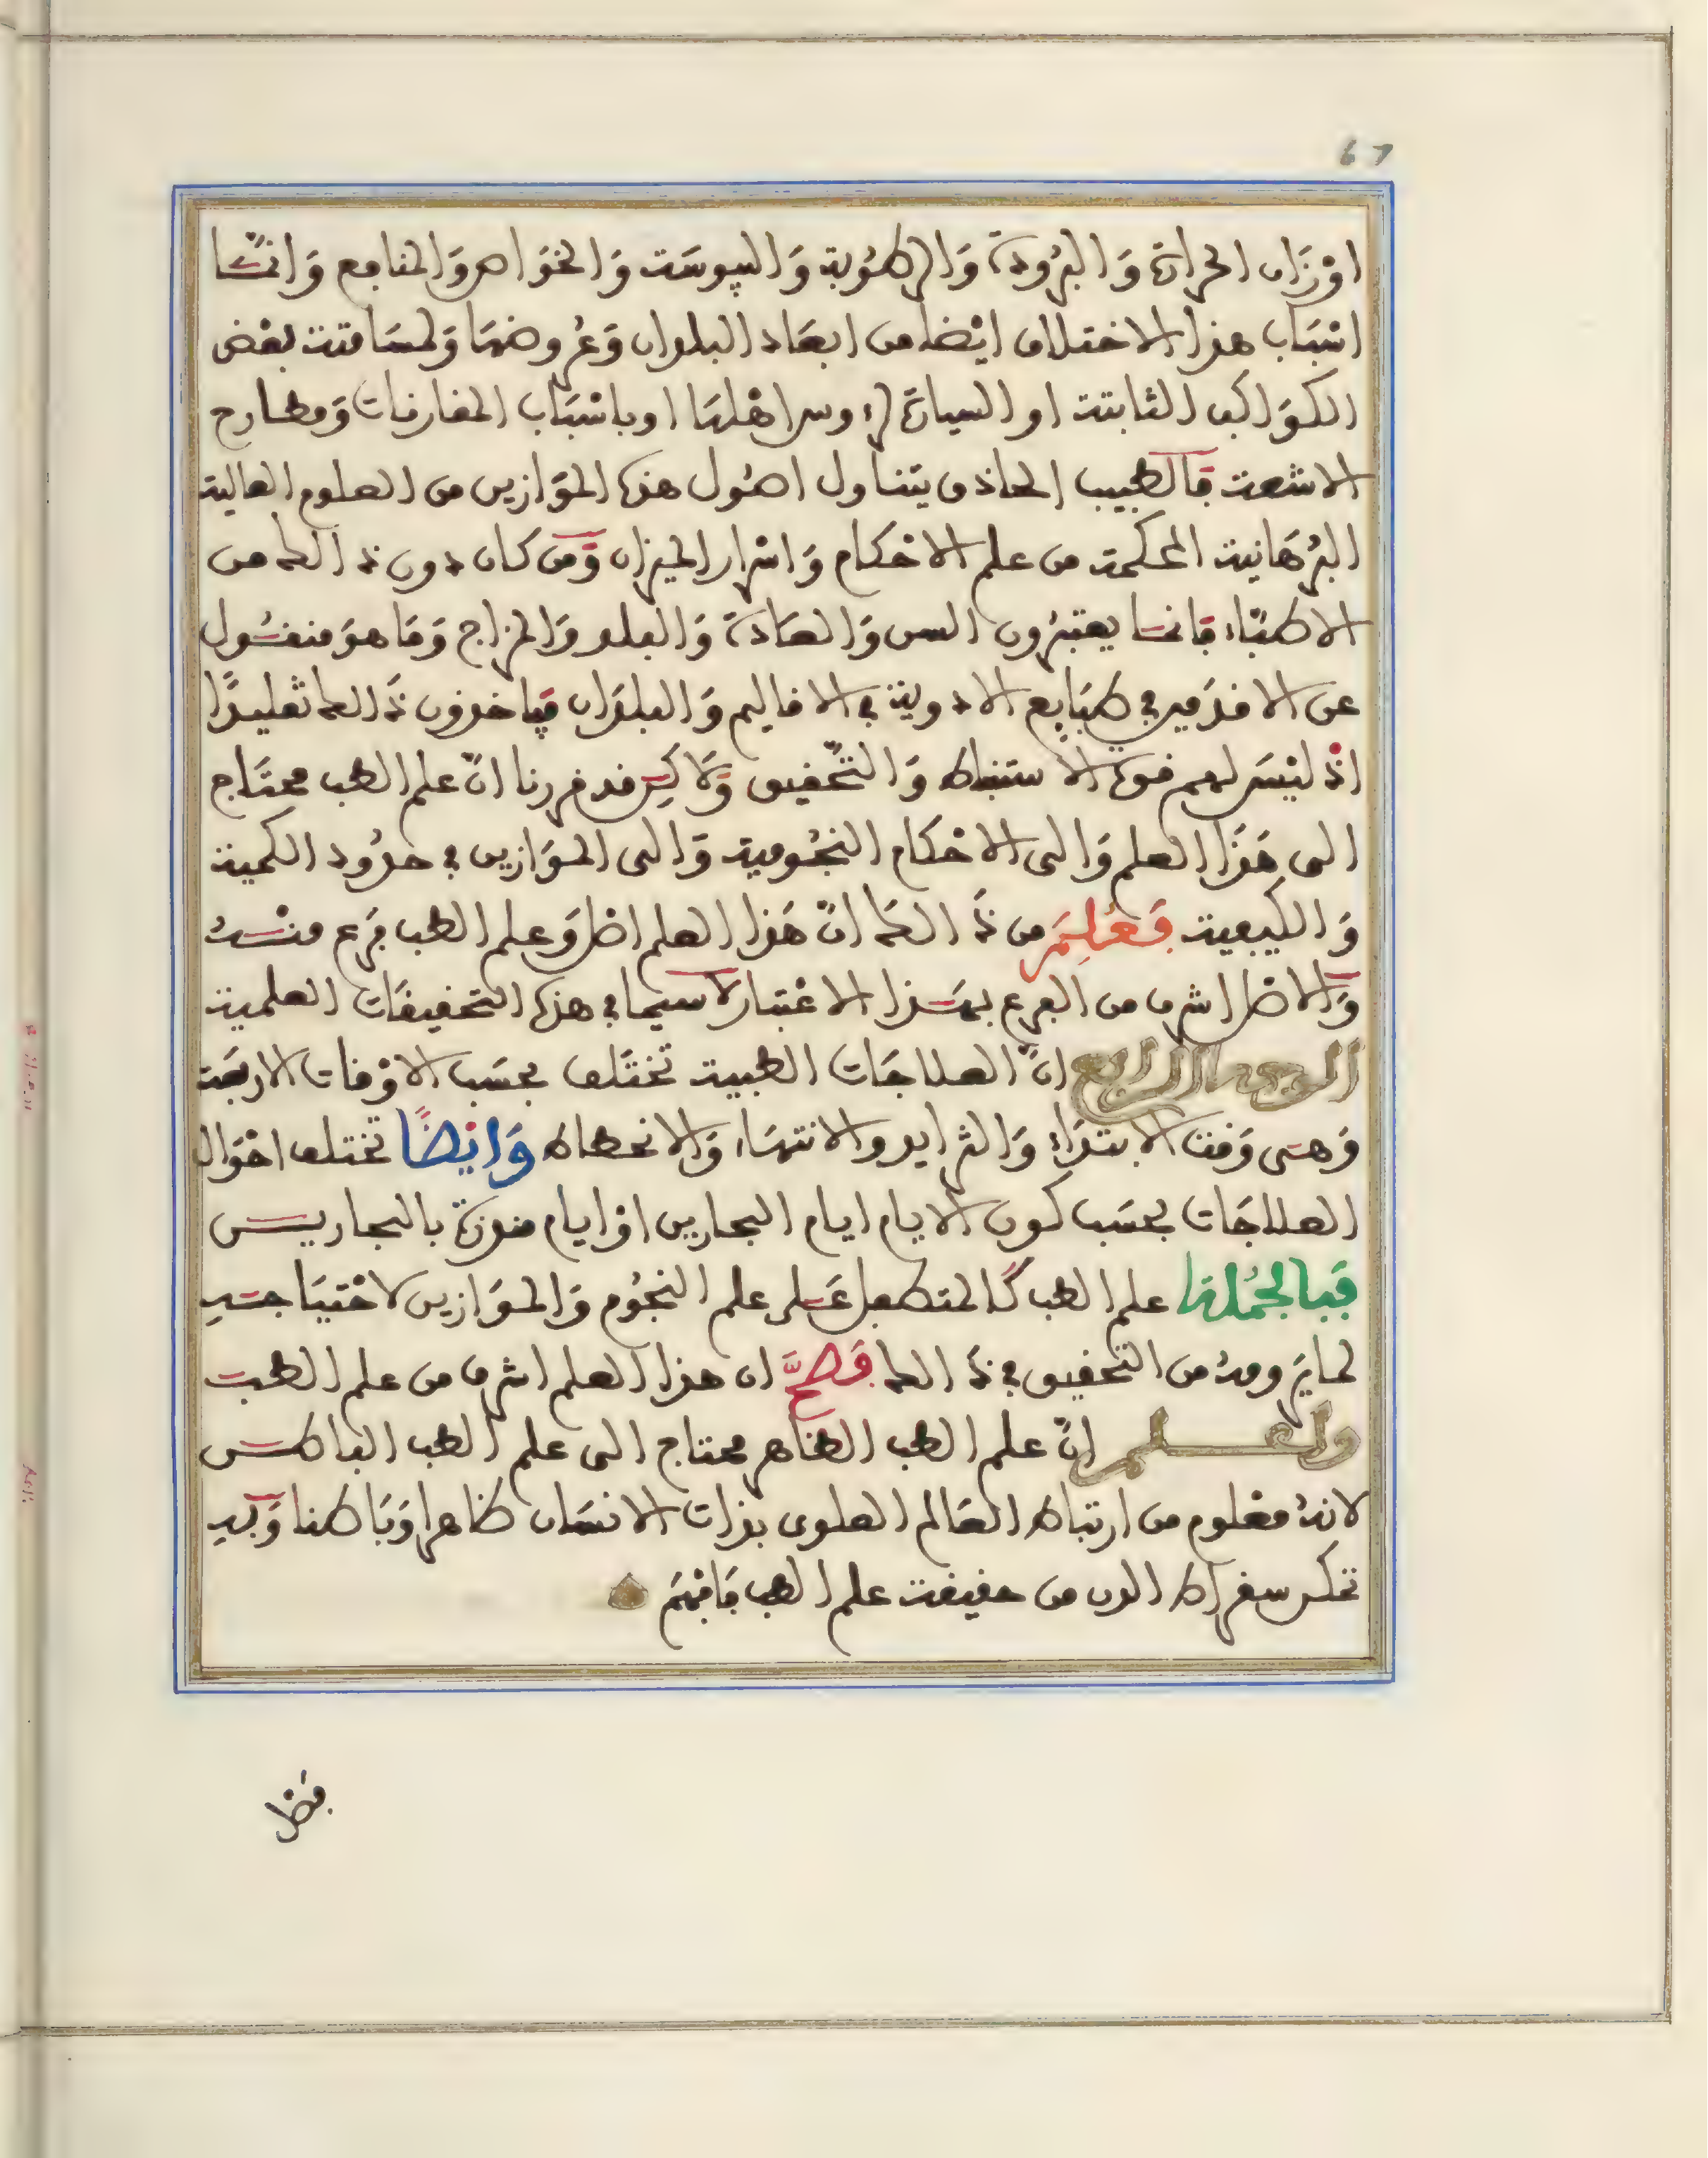 67
اوْزَان الحرارة وَالبرُودة وَالرطوُبة وَاليبوسَة وَالخوَاص وَالمنافع وَانمَّا
اسْبَاب هذا الاختلاف ايْضا من ابعَاد البلدان وَعُروضهَا وَلمسَامتة بعْض
الكوَاكب الثابتة او السيارة لرءوس اهْلهَا او باسْبَاب المقارنات وَمطارح
الاشعة فَالطبيب الحاذق يتنَاول اصُول هذه الموَازين من العلوم العالية
البرْهَانية المحكمة من علم الاحْكام وَاسْرار الميزان وَمَن كان دون ذالك من
الاطبَّاء فانمَّا يعتبرُون السن وَالعَادة وَالبلد وَالمزاج وَمَا هوَ منقُول
عن الاقدَمين في طبَايع الادوية في الاقاليم وَالبلدَان فيَاخذون ذَالك تقليدًا
اذْ ليْسَ لهم قوة الاستنباط وَالتَّحقيق وَلَاكِن قد قررنا انّ علم الطب محتَاج
الى هَذَا العلم وَالى الاحْكام النجُومية وَالى الموَازين في حدُود الكمية
وَالكيفية فَعُلِمَ من ذَالكَ انّ هَذا العلم اصْل وَعلم الطب فرَع منْهُ
وَالاصْل اشرف من الفرع بهَذا الاعْتبار لاسيما في هذه التحقيقَات العلمية
الوجه الرابع انّ العلاجَات الطبية تختَلف بحسَب الاوْقات الاربعَة
وَهىَ وَقت الابتدَاء وَالتزايد والانتهَاء وَالانحطاط وَايْضًا تختلف احْوَال
العلاجَات بحسَب كون الايام ايام البحارين اوْ ايام منذرة بالبحارين
فَبالجُملة علم الطب كَالمتطفل عَلى علم النجُوم وَالموَازين لاحْتيَاجه
لما يَرومهُ من التحقيق في ذَالك فَصحَّ ان هذا العلم اشرف من علم الطب
ولتعلم انّ علم الطب الظاهر محتاج الى علم الطب الباطن
لانهُ معْلوم من ارتباط العَالم العلوى بذات الانسَان ظاهرا وَبَاطنا وَبه
تفكر سقراط من حقيقة علم الطب فَافْهَم
فصْل